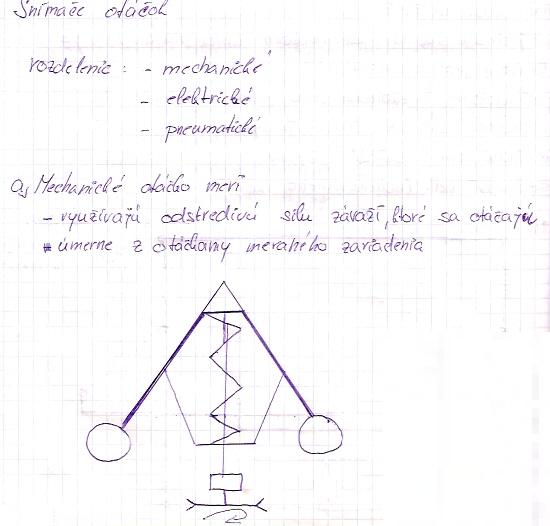 Snímače otáčok
rozdelenie : - mechanické
- elektrické
- pneumatické
a, Mechanické otáčko merí
- využívajú odstredivú silu závaží, ktoré sa otáčajú
- úmerne z otáčkamy meraného zariadenia